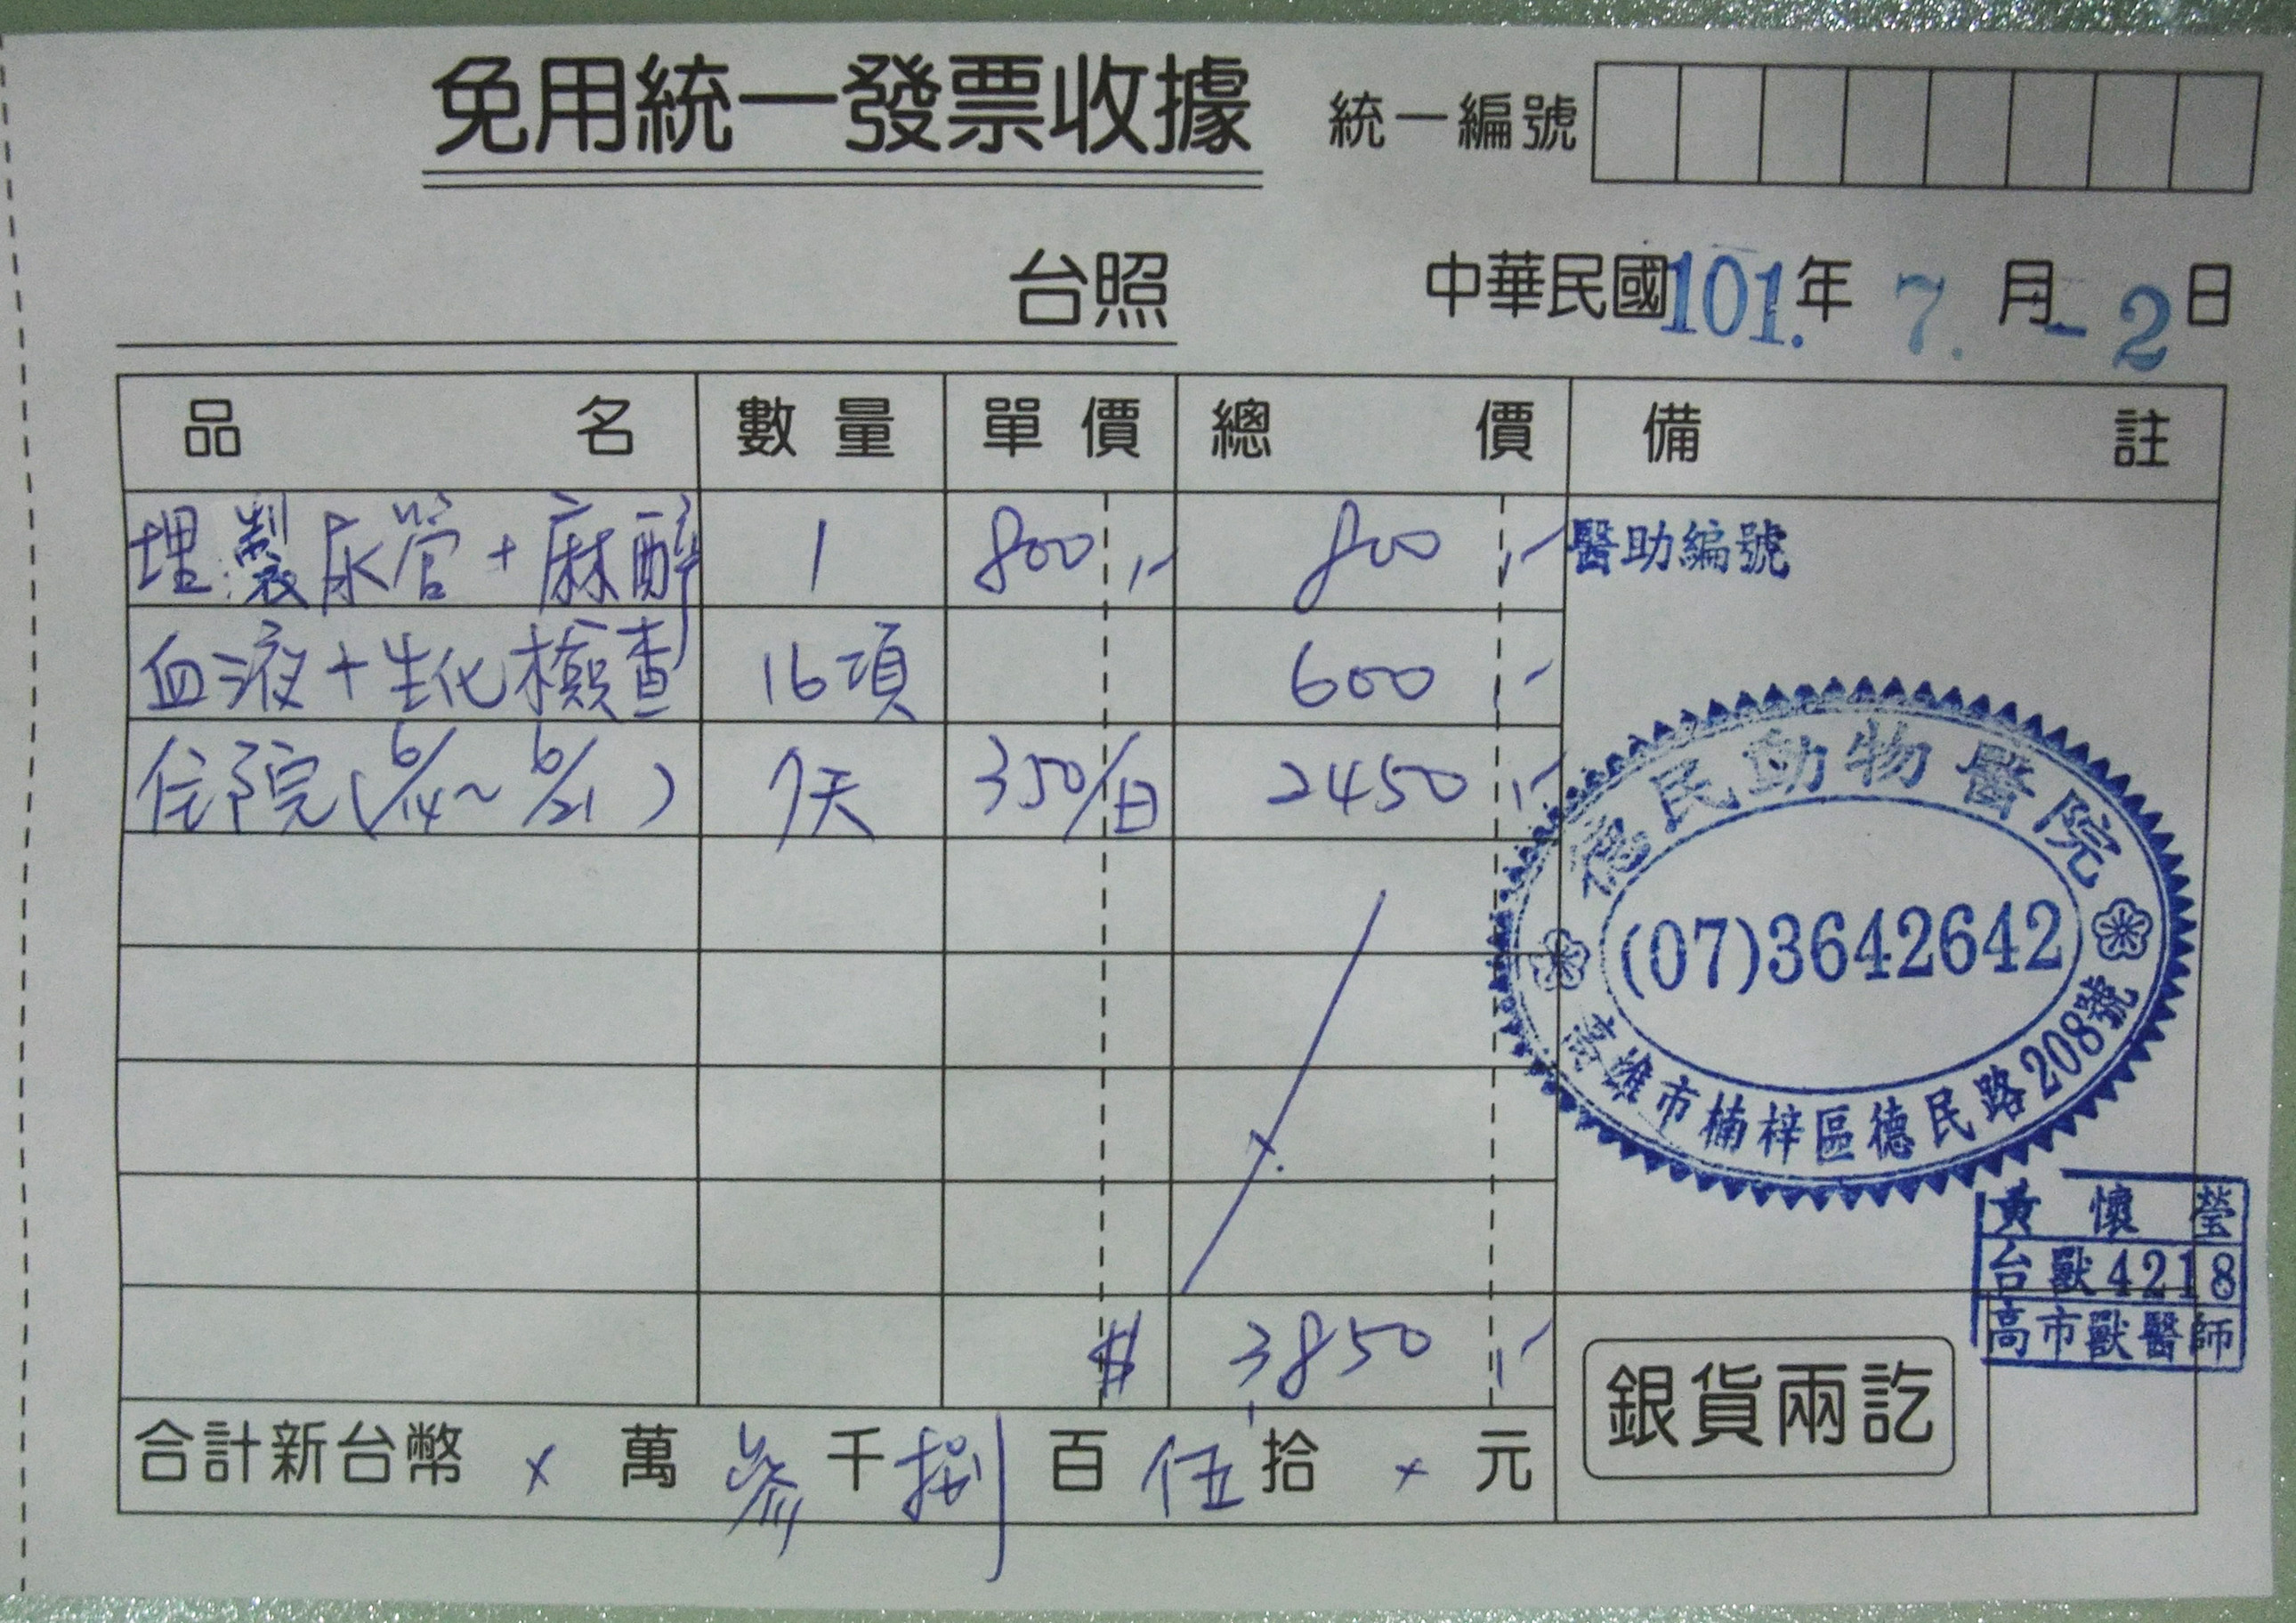 免用統一發票收據 統一編號
台照 中華民國101.年 7.月-2日
品名 數量 單價 總價 備註
埋製尿管+麻醉 1 800,- 800,- 醫助編號
血液+生化檢查 16項 600,-
住院(6/14~6/21) 7天 350/日 2450,-
德民動物醫院
(07)3642642
高雄市楠梓區德民路208號
黃懷瑩
台獸4218
高市獸醫師
$ 3850,-
合計新台幣 x 萬 參 千 捌 百 伍 拾 x 元 銀貨兩訖